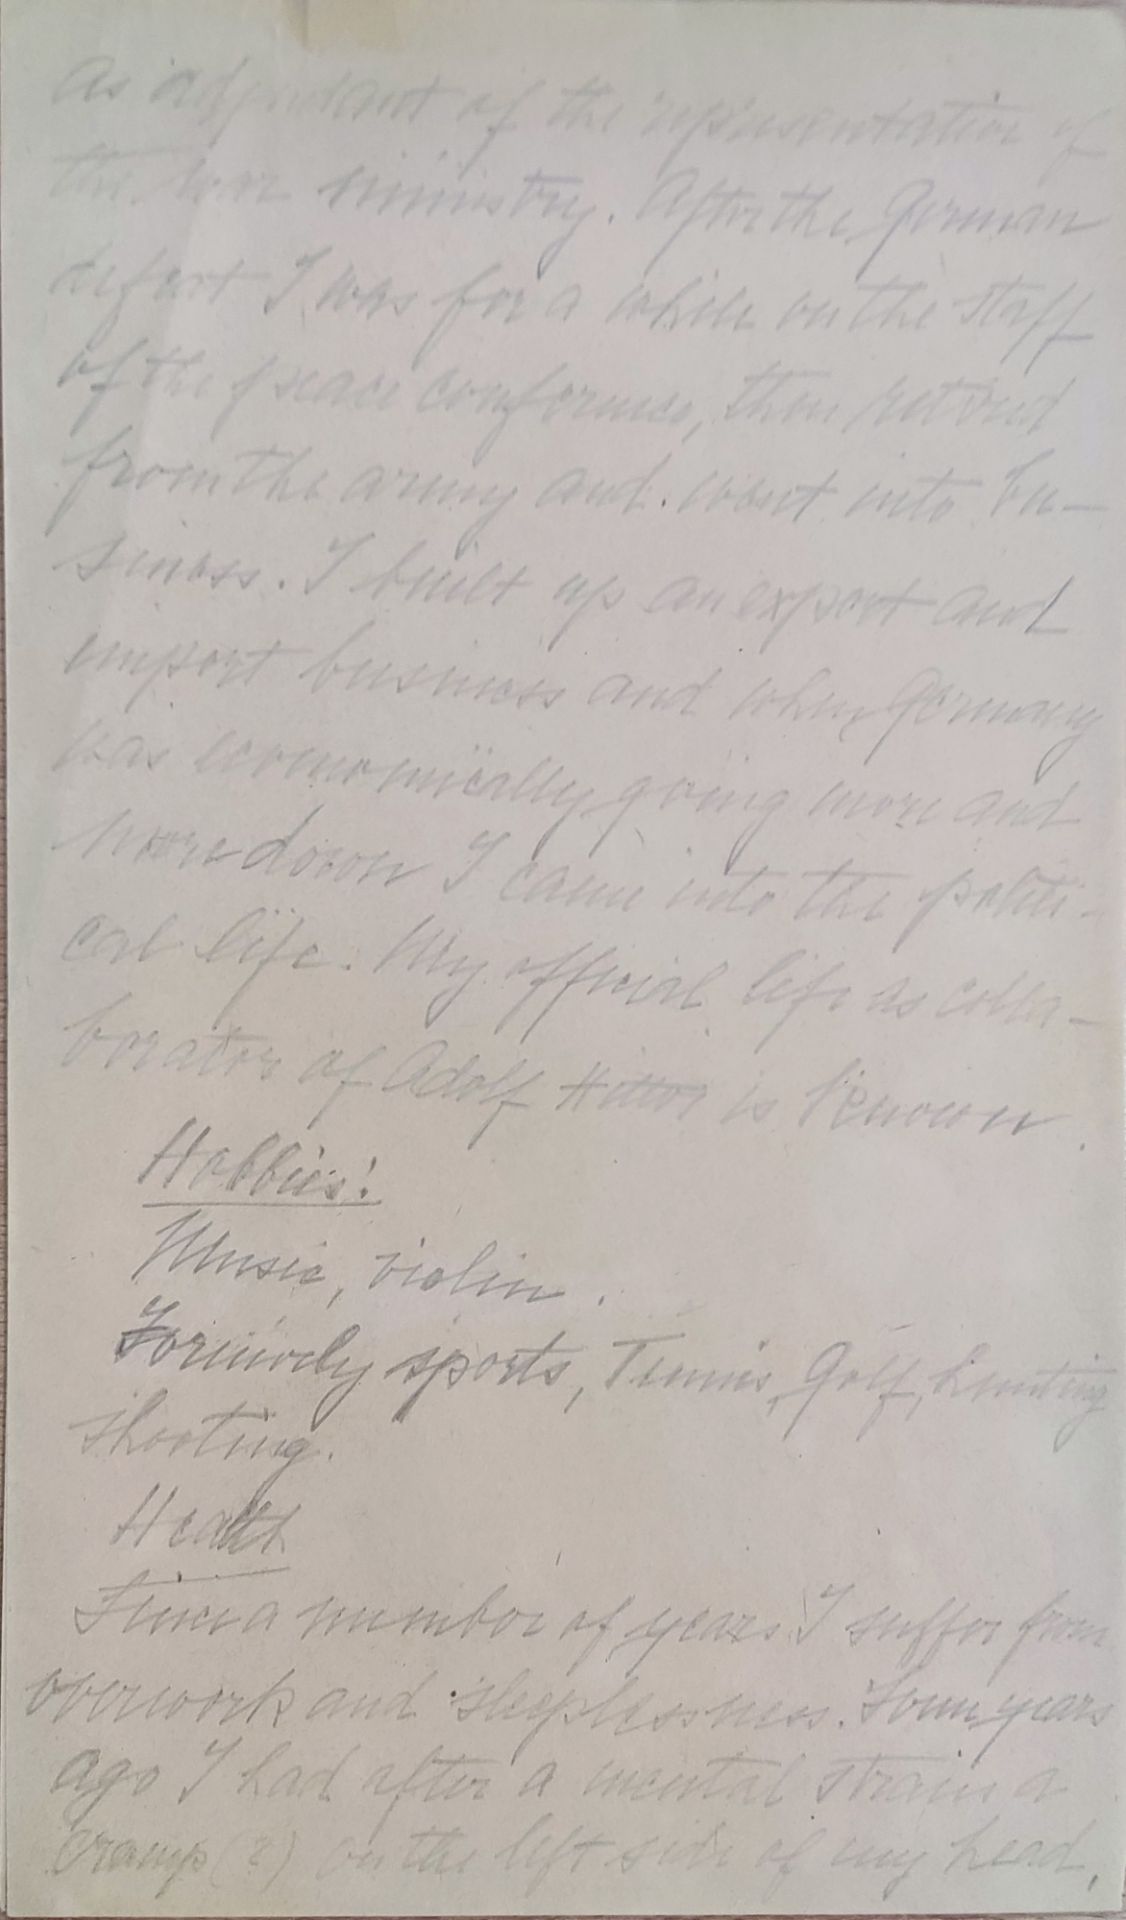 As adjudant of the representation of
the war ministry. After the German
defeat I was for a while on the staff
of the peace conference, then retired
from the army and went into bu-
siness. I built up an export and
import business and when Germany
was economically going more and
more down I came into the politi-
cal life. My official life as colla-
borator of Adolf Hitler is known.
Hobbies:
Music, violin.
Formerly sports, Tennis, Golf, hunting
shooting.
Health
Since a number of years I suffer from
overwork and sleeplessness. Some years
ago I had after a mental strain a
cramp (?) on the left side of my head,